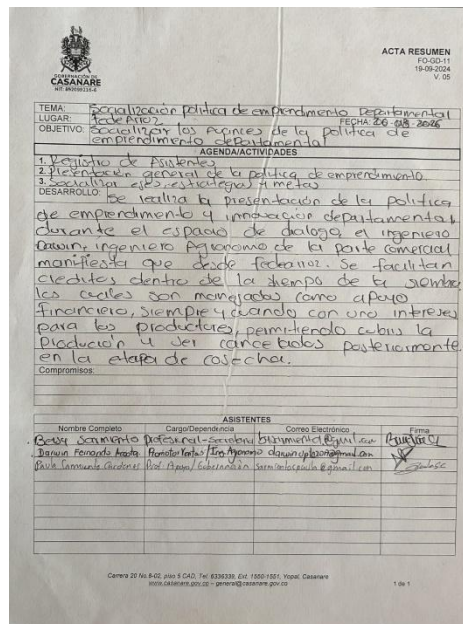 GOBERNACIÓN DE
CASANARE
NIT. 892099216-6
ACTA RESUMEN
FO-GD-11
19-09-2024
V. 05
TEMA: Socialización politica de emprendimiento Departamental
LUGAR: fedeArroz FECHA: 2026
OBJETIVO: Socializar los Avances de la politica de
emprendimiento departamental
AGENDA/ACTIVIDADES
1. Registro de Asistentes
2. Presentación general de la politica de emprendimiento.
3. Socializar ejes, estrategias y metas
DESARROLLO: Se realiza la presentación de la politica
de emprendimiento y innovación departamental,
durante el espacio de dialogo, el ingeniero
Darwin, ingeniero Agronomo de la parte comercial
manifiesta que desde fedearroz. Se facilitan
creditos dentro de la tiempo de la siembra
los cuales son manejados como apoyo
financiero, siempre y cuando con uno intereses
para los productores, permitiendo cubrir la
producion y ser cancelados posteriormente
en la etapa de cosecha.
Compromisos:
ASISTENTES
Nombre Completo Cargo/Dependencia Correo Electrónico Firma
Betsy Sarmiento profesional-Secretaria
Darwin Fernando Acosta Promotor Ventas/Ing. Agronomo
Paula Cardenas Prof. Apoyo/Gobernación
Carrera 20 No.8-02, piso 5 CAD, Tel. 6336339, Ext. 1550-1551, Yopal, Casanare
www.casanare.gov.co – general@casanare.gov.co
1 de 1